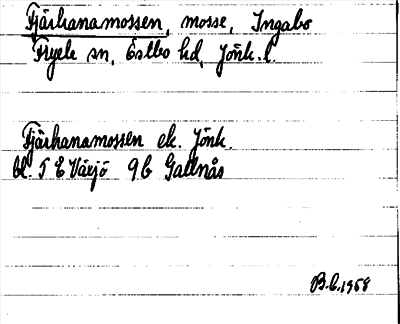 Fjärhanamossen, mosse, Ingabo
Fryele sn, Östbo hd, Jönk. l.
Fjärhanamossen ek. Jönk.
bl. 5 E Växjö 9b Gällnås
B.L. 1958